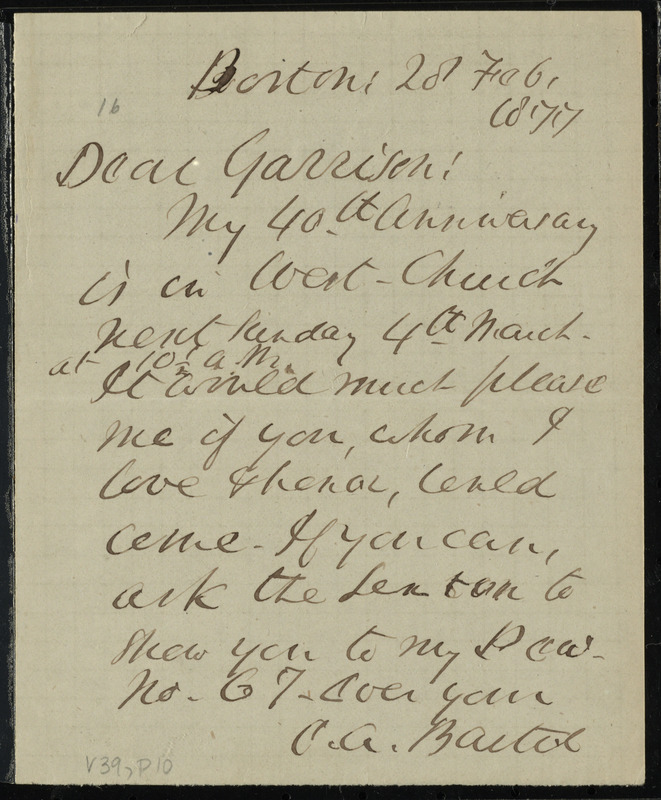 Boston: 28 Feb.
1877
16
Dear Garrison:
My 40th Anniversary
is in West-Church
next Sunday 4th March.
at 10 1/2 a.m.
It would much please
me if you, whom I
love & honor, could
come. If you can,
ask the Sexton to
show you to my Pew.
No. 67. Ever your
C. A. Bartol
V39, P10